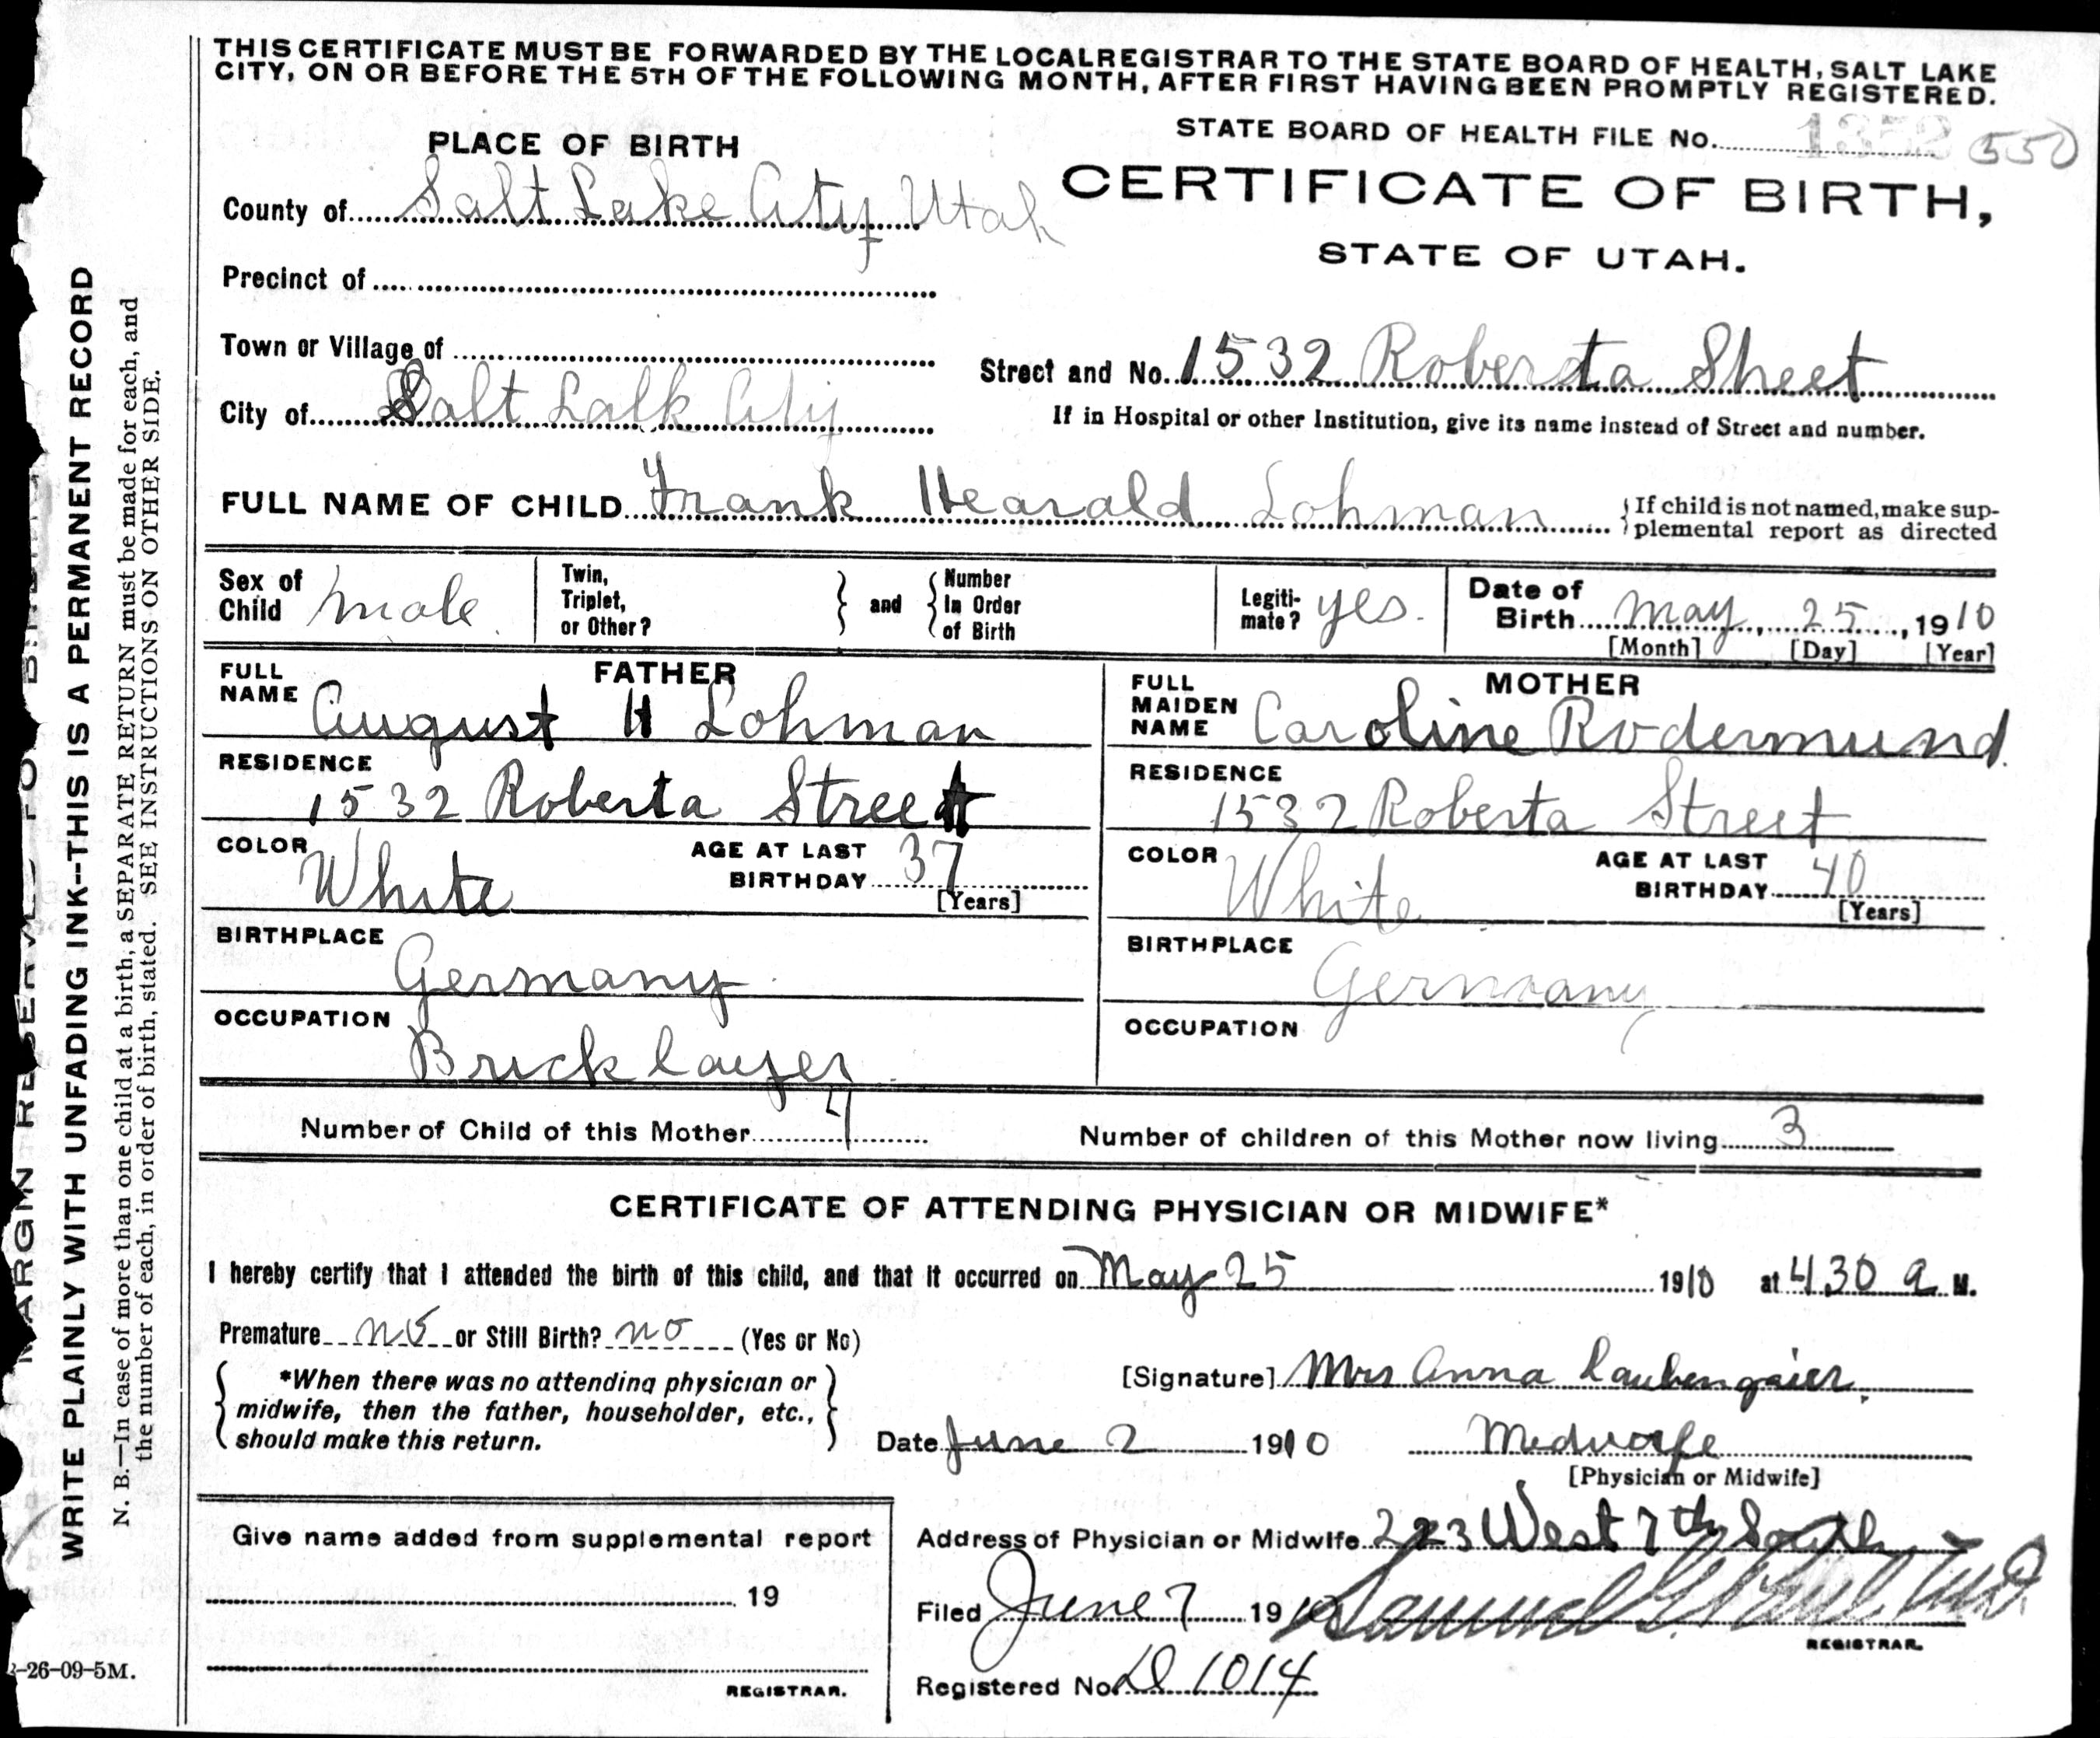 THIS CERTIFICATE MUST BE FORWARDED BY THE LOCAL REGISTRAR TO THE STATE BOARD OF HEALTH, SALT LAKE
CITY, ON OR BEFORE THE 5TH OF THE FOLLOWING MONTH, AFTER FIRST HAVING BEEN PROMPTLY REGISTERED.
STATE BOARD OF HEALTH FILE No. 1352 550
PLACE OF BIRTH
CERTIFICATE OF BIRTH,
STATE OF UTAH.
County of Salt Lake City Utah
Precinct of
Town or Village of
City of Salt Lalk City
Street and No. 1532 Roberta Street
If in Hospital or other Institution, give its name instead of Street and number.
FULL NAME OF CHILD Frank Hearald Lohman
If child is not named, make sup-
plemental report as directed
Sex of Child male
Twin, Triplet, or Other?
and
Number In Order of Birth
Legiti-mate? yes.
Date of Birth May, 25, 1910
[Month] [Day] [Year]
FATHER
FULL NAME August H Lohman
RESIDENCE
1532 Roberta Street
COLOR White
AGE AT LAST BIRTHDAY 37
[Years]
BIRTHPLACE
Germany
OCCUPATION
Brick layer
MOTHER
FULL MAIDEN NAME Caroline Rodermund
RESIDENCE
1532 Roberta Street
COLOR White
AGE AT LAST BIRTHDAY 40
[Years]
BIRTHPLACE
Germany
OCCUPATION
Number of Child of this Mother 4
Number of children of this Mother now living 3
CERTIFICATE OF ATTENDING PHYSICIAN OR MIDWIFE*
I hereby certify that I attended the birth of this child, and that it occurred on May 25 1910 at 430 a M.
Premature no or Still Birth? no (Yes or No)
*When there was no attending physician or
midwife, then the father, householder, etc.,
should make this return.
[Signature] Mrs Anna Laubengaier.
Date June 2 1910 Medwife
[Physician or Midwife]
Give name added from supplemental report
19
REGISTRAR.
Address of Physician or Midwife 223 West 7th South
Filed June 7 1910 Samuel G. Paul MD
REGISTRAR.
Registered No. D 1014
MARGIN RESERVED FOR BINDING
WRITE PLAINLY WITH UNFADING INK--THIS IS A PERMANENT RECORD
N. B.—In case of more than one child at a birth, a SEPARATE RETURN must be made for each, and
the number of each, in order of birth, stated. SEE INSTRUCTIONS ON OTHER SIDE.
-26-09-5M.